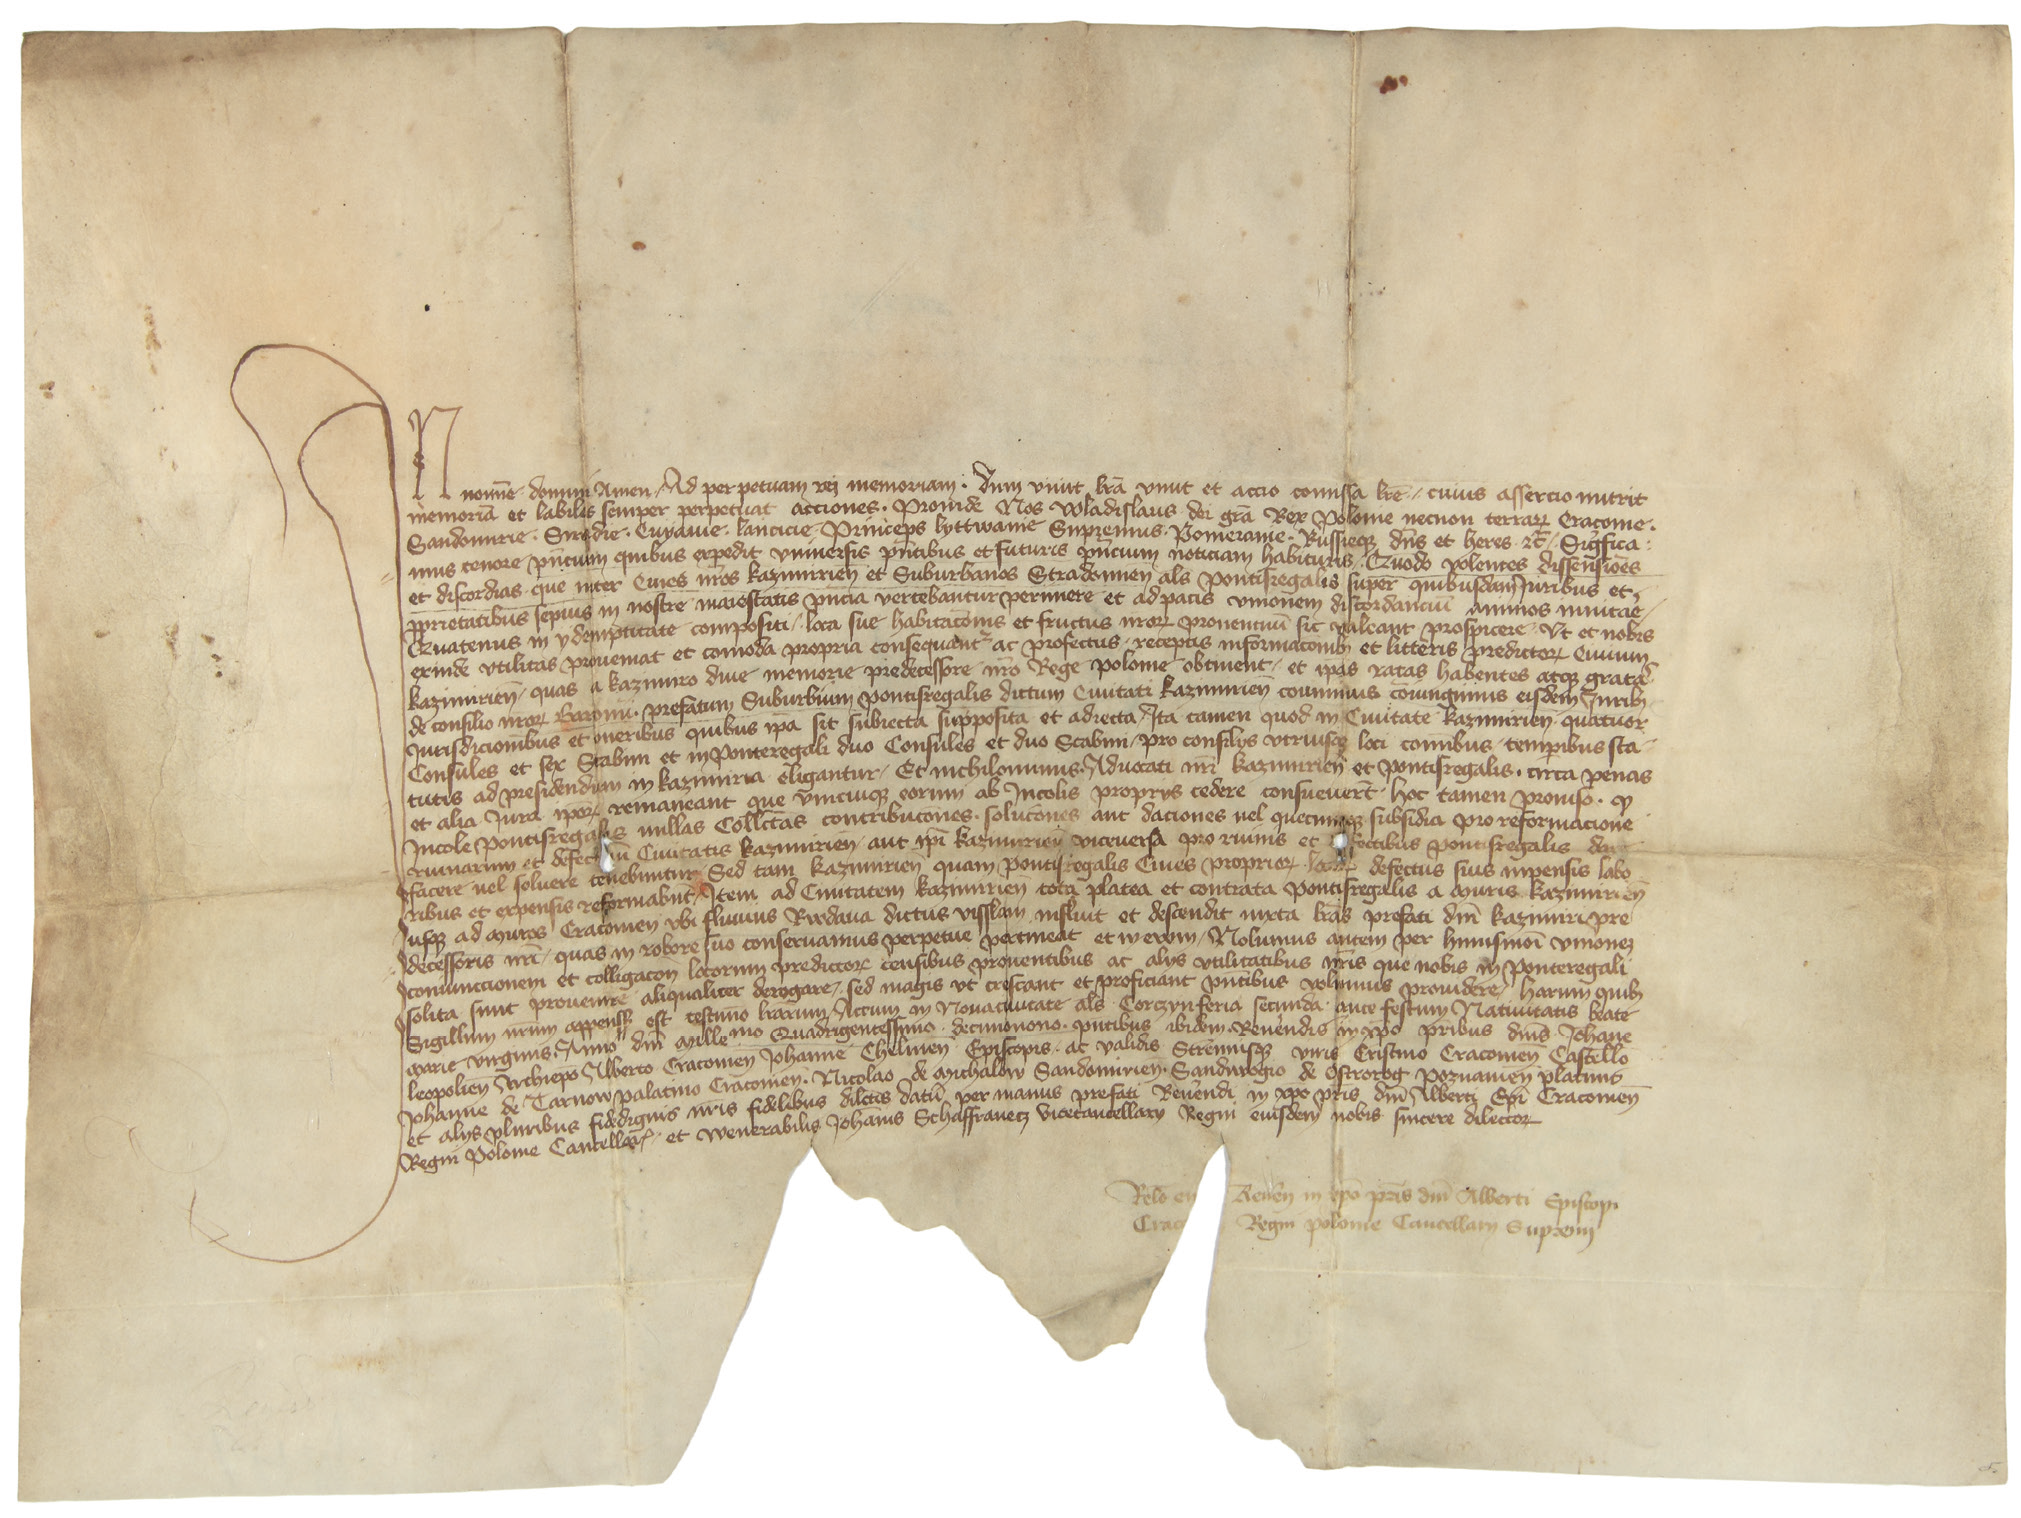 In nomine domini Amen Ad perpetuam rei memoriam. Dum viuit lrā viuit et accio comissa lrē cuius assercio nutrit
memoriā et labiles semper perpetuat acciones. Proinde Nos Wladislaus dei grā Rex Polonie necnon terrarꝝ Cracouie.
Sandomirie. Siradie. Cuyauie. lancicie. Princeps lyttwanie Supremus. Pomeranie. Russieqꝫ dn̄s et heres ⁊c̄. Sigfica
mus tenore pn̄cium quibus expedit vniuersis pn̄tibus et futuris pn̄cium noticiam habituris. Quodo volentes dissensiōes
et discordias que inter Ciues nr̄os kazimirieñ et Suburbanos Stradomieñ als Pontisregalis super quibusdam Juribus et
ꝓprietatibus sepius in nostre maiestatis pn̄cia vertebantur perimere et ad pacis vnionem discordanciū animos inuitare
Quatenus in ydemptitate compositi loca sue habitacōnis et fructus nr̄orꝝ prouentuū sic valeant prospicere. Vt et nobis
exinde vtilitas proueniat et comoda propria consequant᷑ ac profectus. receptis informacōnibꝫ et litteris predictorꝝ Ciuium
kazimirieñ. quas a kazimiro diue memorie predecessore nr̄o Rege polonie obtinent. et ipas ratas habentes atqꝫ gratas
de consilio nr̄orꝝ Baronū. prefatum Suburbium pontisregalis dictum Ciuitati kazimirieñ counimus coniungimus eisdem Juribꝫ
Jurisdicionibus et oneribus quibus ip̄a sit subiecta supposita et adiecta Ita tamen quod in Ciuitate kazimirieñ quatuor
Consules et sex Scabini et in Ponteregali duo Consules et duo Scabini pro consilys vtriusqꝫ loci comībus temporibus sta
tutis ad presidendum in kazimiria eligantur. Et nichilominus. Aduocati nr̄i kazimirieñ et Pontisregalis. circa penas
et alia Jura ip̄orꝝ remaneant que vnicuiqꝫ eorum ab Incolis proprys cedere consueuer̄t. hoc tamen prouiso. qꝫ
Incole Pontisregalis nullas Collectas contribucōnes. solucōnes aut daciones uel quecumqꝫ subsidia pro reformacione
ruinarum et defectuū Ciuitatis kazimirieñ aut ip̄i kazimirieñ viceuersa pro ruinis et defectibus pontisregalis dare
facere uel soluere tenebuntur Sed tam kazimirieñ quam pontisregalis Ciues propriorꝝ locorꝝ defectus suis inpensis labo
ribus et expensis reformabūt. Item ad Ciuitatem kazimirieñ tota platea et contrata pontisregalis a muris kazimirieñ
vsqꝫ ad muros Cracouieñ vbi fluuius Rudaua dictus visslam influit et descendit iuxta lrās prefati dn̄i kazimiri pre
decessoris nr̄i. quas in robore suo conseruamus perpetue pertineat et weram. Nolumus autem per huiusmōi vnioneꝫ
coniunccionem et colligacōn locorum predictorꝝ censibus prouentibus ac alys vtilitatibus nr̄is que nobis in ponteregali
solita sunt prouenire aliqualiter derogare. sed magis vt crescant et proficiant pn̄tibus volumus prouidere. harum quibꝫ
Sigillum nr̄um appenss̄ est testimo lrarum. Actum in Nouaciuitate als Corczyn feria secunda ante festum Natiuitatis beate
Marie virginis. Anno dn̄i Millemo Quadrigentesimo decimonono. pn̄tibus ibidem. Reuerendis in xp̄o pr̄ibus dn̄is Johāne
leopolieñ Archiepō Alberto Cracouieñ Johanne Chelmeñ Episcopis. ac validis Strennuisqꝫ viris Cristino Cracouieñ Castello
Johanne de Tarnow palatino Cracouieñ. Nicolao de Michalow Sandomirieñ. Sandiuogio de Ostrorog Poznanieñ palatinis
et alys pluribus fidedignis nr̄is fidelibus dilectis datū per manus prefati Reuerendi in xp̄o pr̄is dn̄i Alberti Epī Cracouieñ
Regni Polonie Cancellarꝝ. et wenerabilis Johānis Schaffranecz vicecancellary Regni eiusdem nobis sincere dilectorꝝ
Relō eiusdem Reuereñ in xp̄o pr̄is dn̄i Alberti Episcopi
Cracouieñ Regni polonie Cancellary Supremi